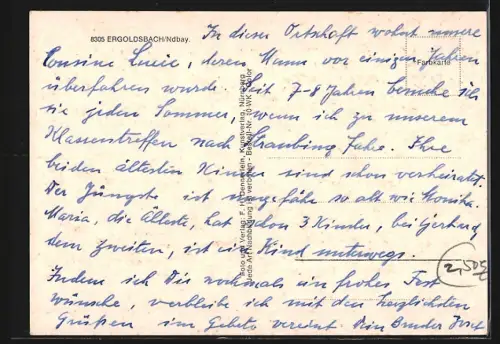 8305 ERGOLDSBACH/Ndbay.
In dieser Ortschaft wohnt unsere
Cousine Luzie, deren Mann vor einigen Jahren
Farbkarte
überfahren wurde. Seit 7-8 Jahren besuche ich
sie jeden Sommer, wenn ich zu unserem
Klassentreffen nach Straubing fahre. Ihre
beiden ältesten Kinder sind schon verheiratet.
Der Jüngste ist ungefähr so alt wie Monika.
Maria, die Älteste, hat schon 3 Kinder, bei Gerhard,
dem zweiten, ist ein Kind unterwegs.
2,50
Indem ich Dir nochmals ein frohes Fest
wünsche, verbleibe ich mit den herzlichsten
Grüßen im Gebete vereint Dein Bruder Josef
Foto und Verlag: F. Kunstverlag, Nürnberg
Jede Art Nachbildung verboten - Bestell-Nr.